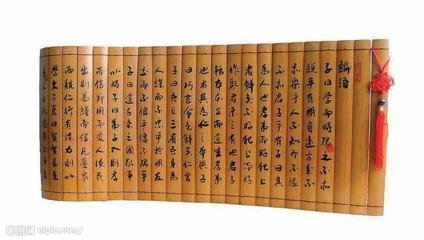 論語
子曰學而時習之不亦
說乎有朋自遠方來不
亦樂乎人不知而不慍
不亦君子乎有子曰其
為人也孝弟而好犯上
者鮮矣不好犯上而好
作亂者未之有也君子
務本本立而道生孝弟
也者其為仁之本與子
曰巧言令色鮮矣仁曾
子曰吾日三省吾身為
人謀而不忠乎與朋友
交而不信乎傳不習乎
子曰道千乘之國敬事
而信節用而愛人使民
以時子曰弟子入則孝
出則弟謹而信汎愛眾
而親仁行有餘力則以
學文子夏曰賢賢易色
昵图网 nipic.com